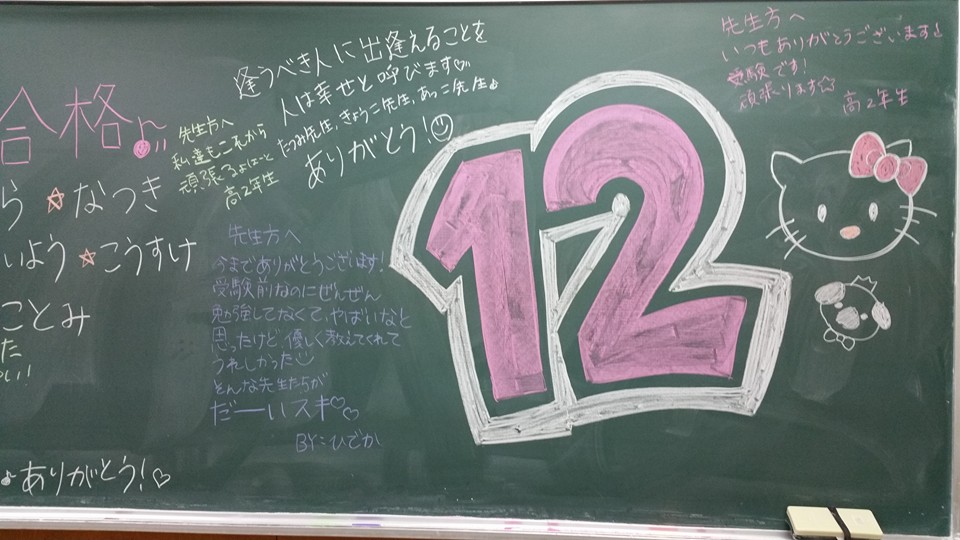 合格
ら ☆ なつき
いよう ☆ こうすけ
ことみ
た
ありがとう!♡
逢うべき人に出逢えることを
人は幸せと呼びます♡
たつみ先生、きょうこ先生、あっこ先生♪
ありがとう!
先生方へ
私達もこれから
頑張
高2年生
先生方へ
今までありがとうございます!
受験前なのにぜんぜん
勉強してなくて、やばいなと
思ったけど、優しく教えてくれて
うれしかった
そんな先生たちが
だーいスキ♡♡
BY:ひでか
12
先生方へ
いつもありがとうございます!
受験です!
頑張ります☆
高2年生